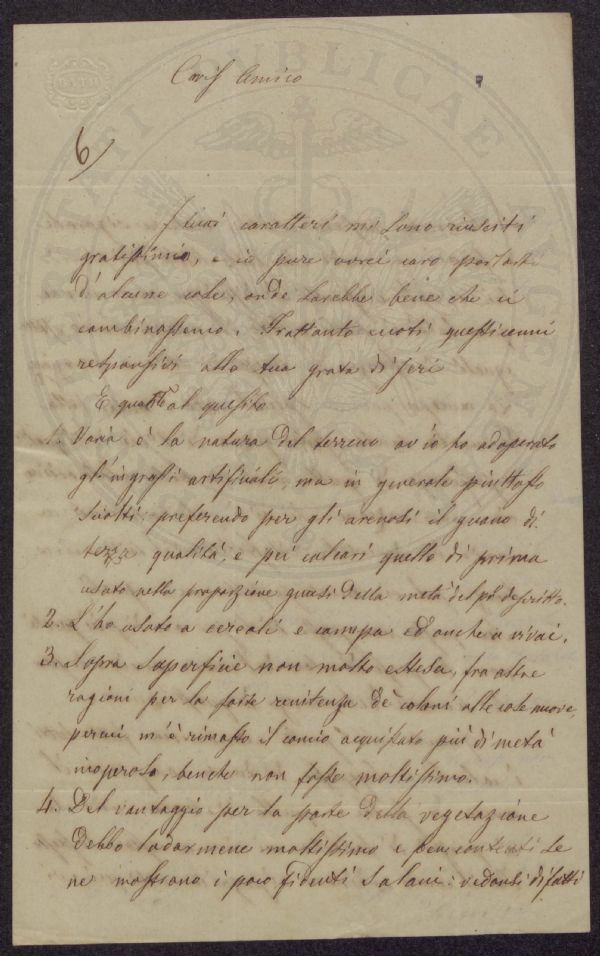 Cariss Amico
6
I tuoi caratteri mi sono riusciti
gratissimi, e io pure avrei caro parlarti
d'alcune cose, onde sarebbe bene che ci
combinassemo. Frattanto eccoti questi cenni
responsivi alla tua grata di jeri
E quanto al quesito
1. Varia è la natura del terreno ov'io ho adoperato
gl'ingrassi artificiali, ma in generale piuttosto
sciolti: preferendo per gli arenosi il guano di
terza qualità, e pei calcari quello di prima
usato nella proporzione quasi della metà del prescritto.
2. L'ho usato a cereali e canapa ed anche a vivai.
3. Sopra superficie non molto estesa, fra altre
ragioni per la forte renitenza de' coloni alle cose nuove,
percui m'è rimasto il concio acquistato più di metà
inoperoso, benche non fosse moltissimo.
4. Del vantaggio per la parte della vegetazione
debbo lodarmene moltissimo e ben contenti se
ne mostrano i poco fidenti : vedonsi difatti